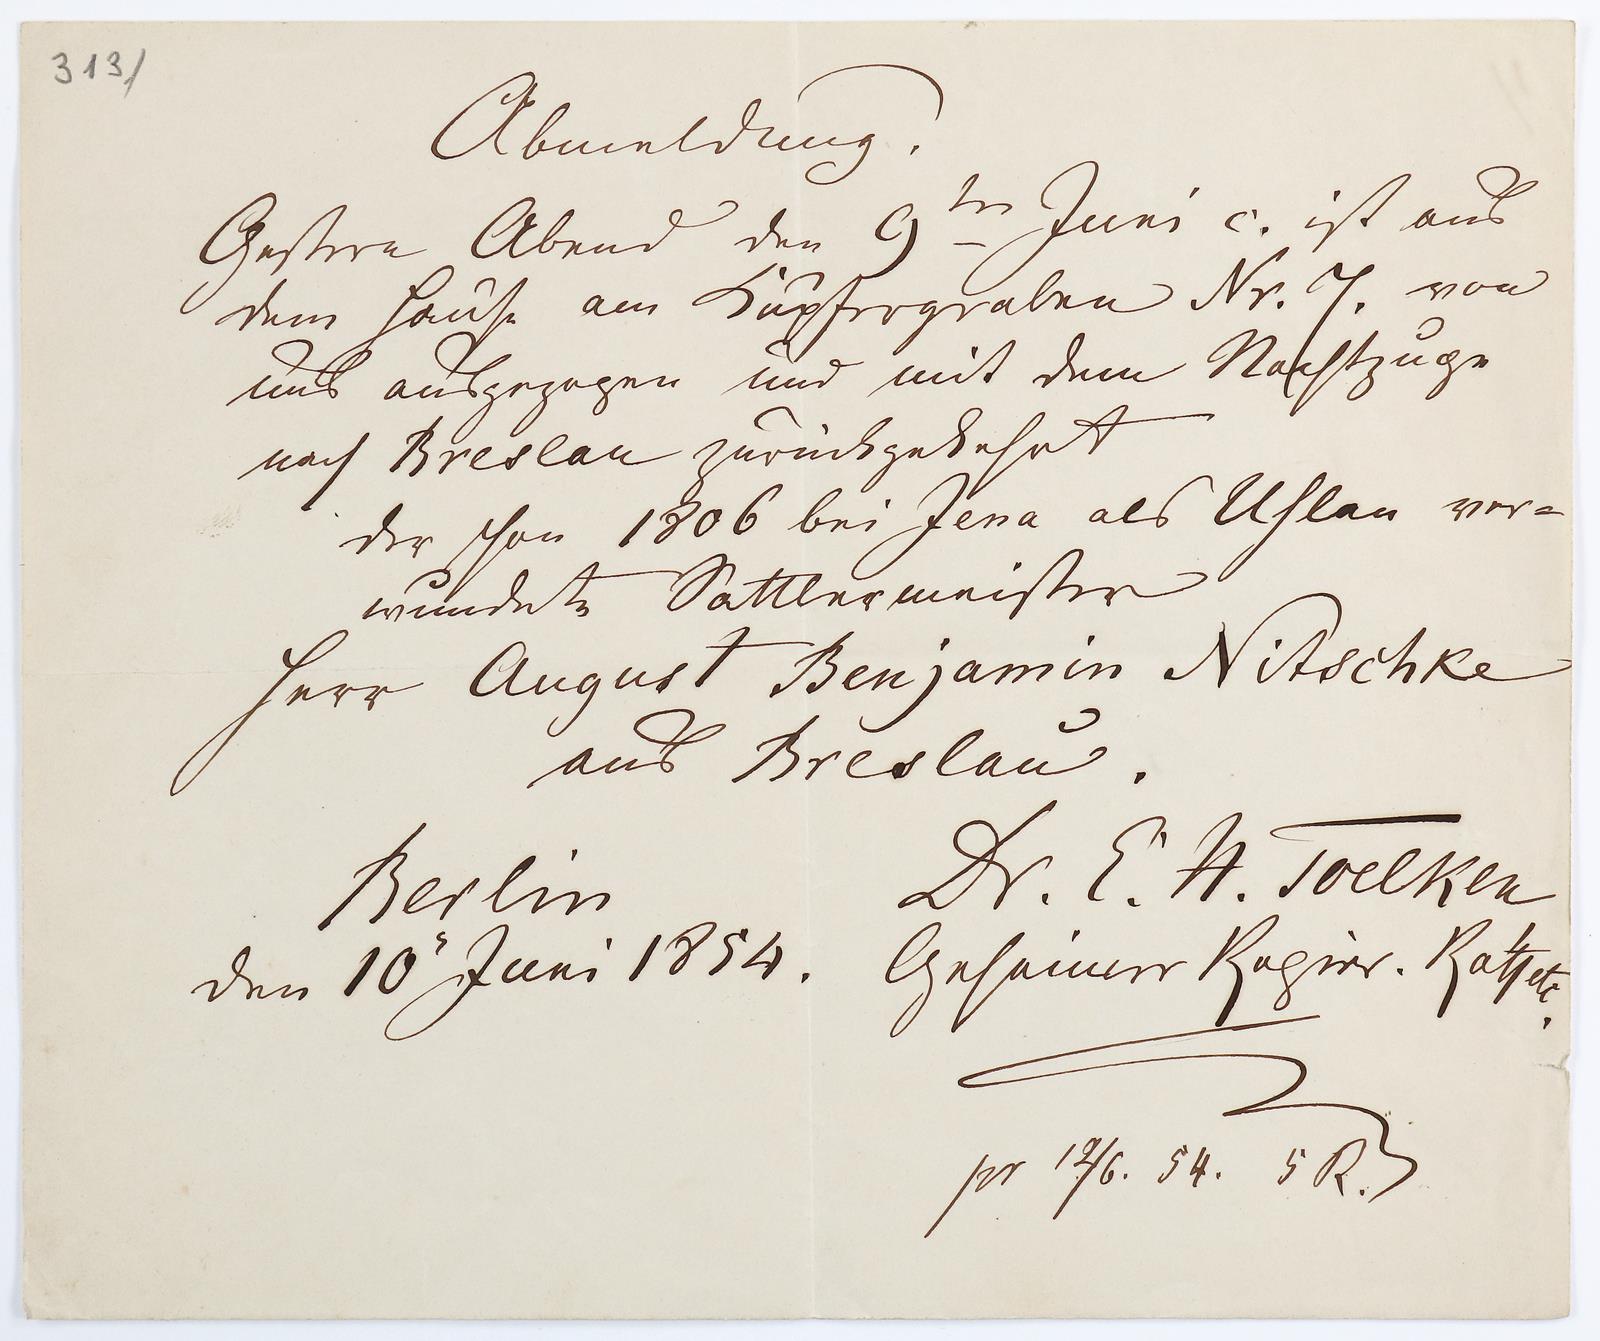 313/
Abmeldung.
Gestern Abend den 9ten Juni c. ist aus
dem Hause am Kupfergraben Nr. 7. von
uns ausgezogen und mit dem Nachtzuge
nach Breslau zurückgekehrt
der schon 1806 bei Jena als Uhlan ver=
wundete Sattlermeister
Herr August Benjamin Nitschke
aus Breslau.
Berlin
den 10t Juni 1854.
Dr. E. H. Toelken
Geheimer Regier. Rath etc.
pr 12/6. 54. 5 R.